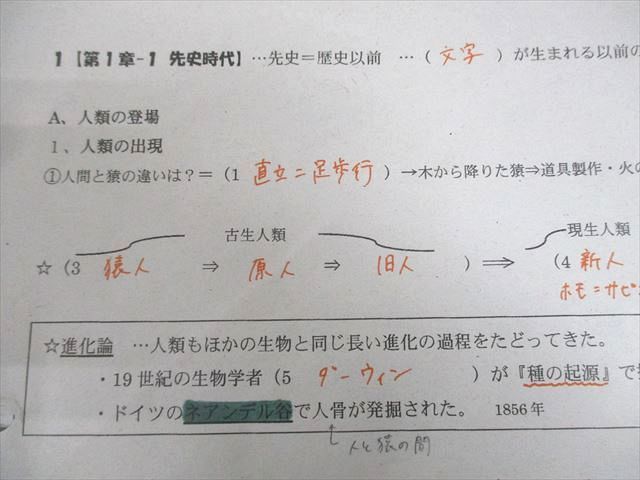 1【第1章-1 先史時代】…先史＝歴史以前 …（ 文字 ）が生まれる以前の
A、人類の登場
1、人類の出現
①人間と猿の違いは？＝（1 直立二足歩行 ）→木から降りた猿⇒道具製作・火の
古生人類 現生人類
☆（3 猿人 ⇒ 原人 ⇒ 旧人 ）⟹ （4 新人
ホモ＝サピ
☆進化論 …人類もほかの生物と同じ長い進化の過程をたどってきた。
・19世紀の生物学者（5 ダーウィン ）が『種の起源』で
・ドイツのネアンデル谷で人骨が発掘された。 1856年
人と猿の間